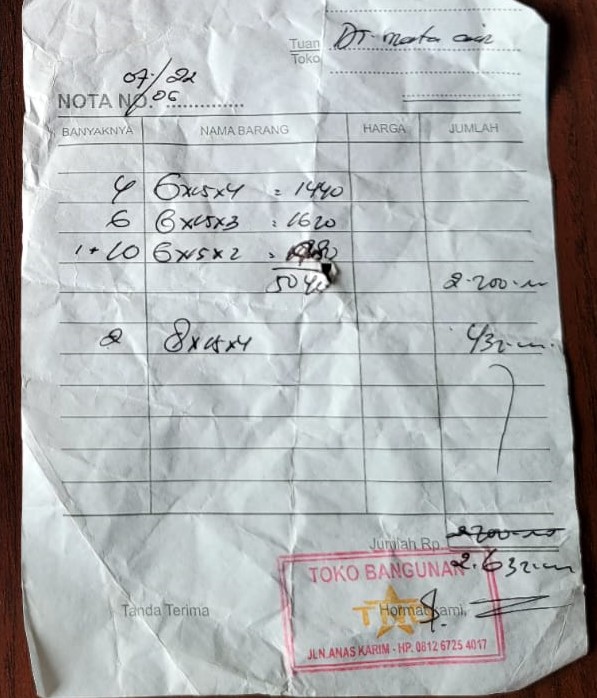 Tuan DT. mata air
Toko
07/22
NOTA NO. 06
BANYAKNYA NAMA BARANG HARGA JUMLAH
4 6x15x4 = 1440
6 6x15x3 : 1620
1+10 6x15x2 =
5040 2.200.-
2 8x15x4 432.-
Jumlah Rp. 2200
2.632.-
TOKO BANGUNAN
Tanda Terima Hormat kami,
JLN.ANAS KARIM - HP. 0812 6725 4017